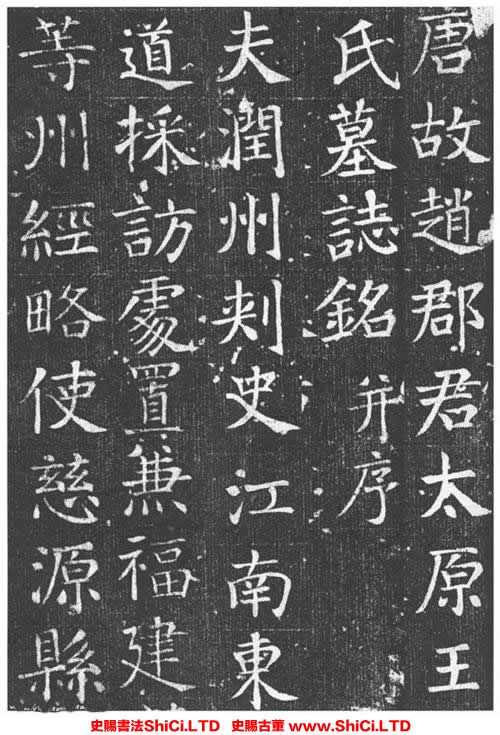 唐故趙郡君太原王
氏墓誌銘并序
夫潤州刾史江南東
道採訪處置兼福建
等州經略使慈源縣
史賜書法ShiCi.LTD 史賜古董 www.ShiCi.LTD